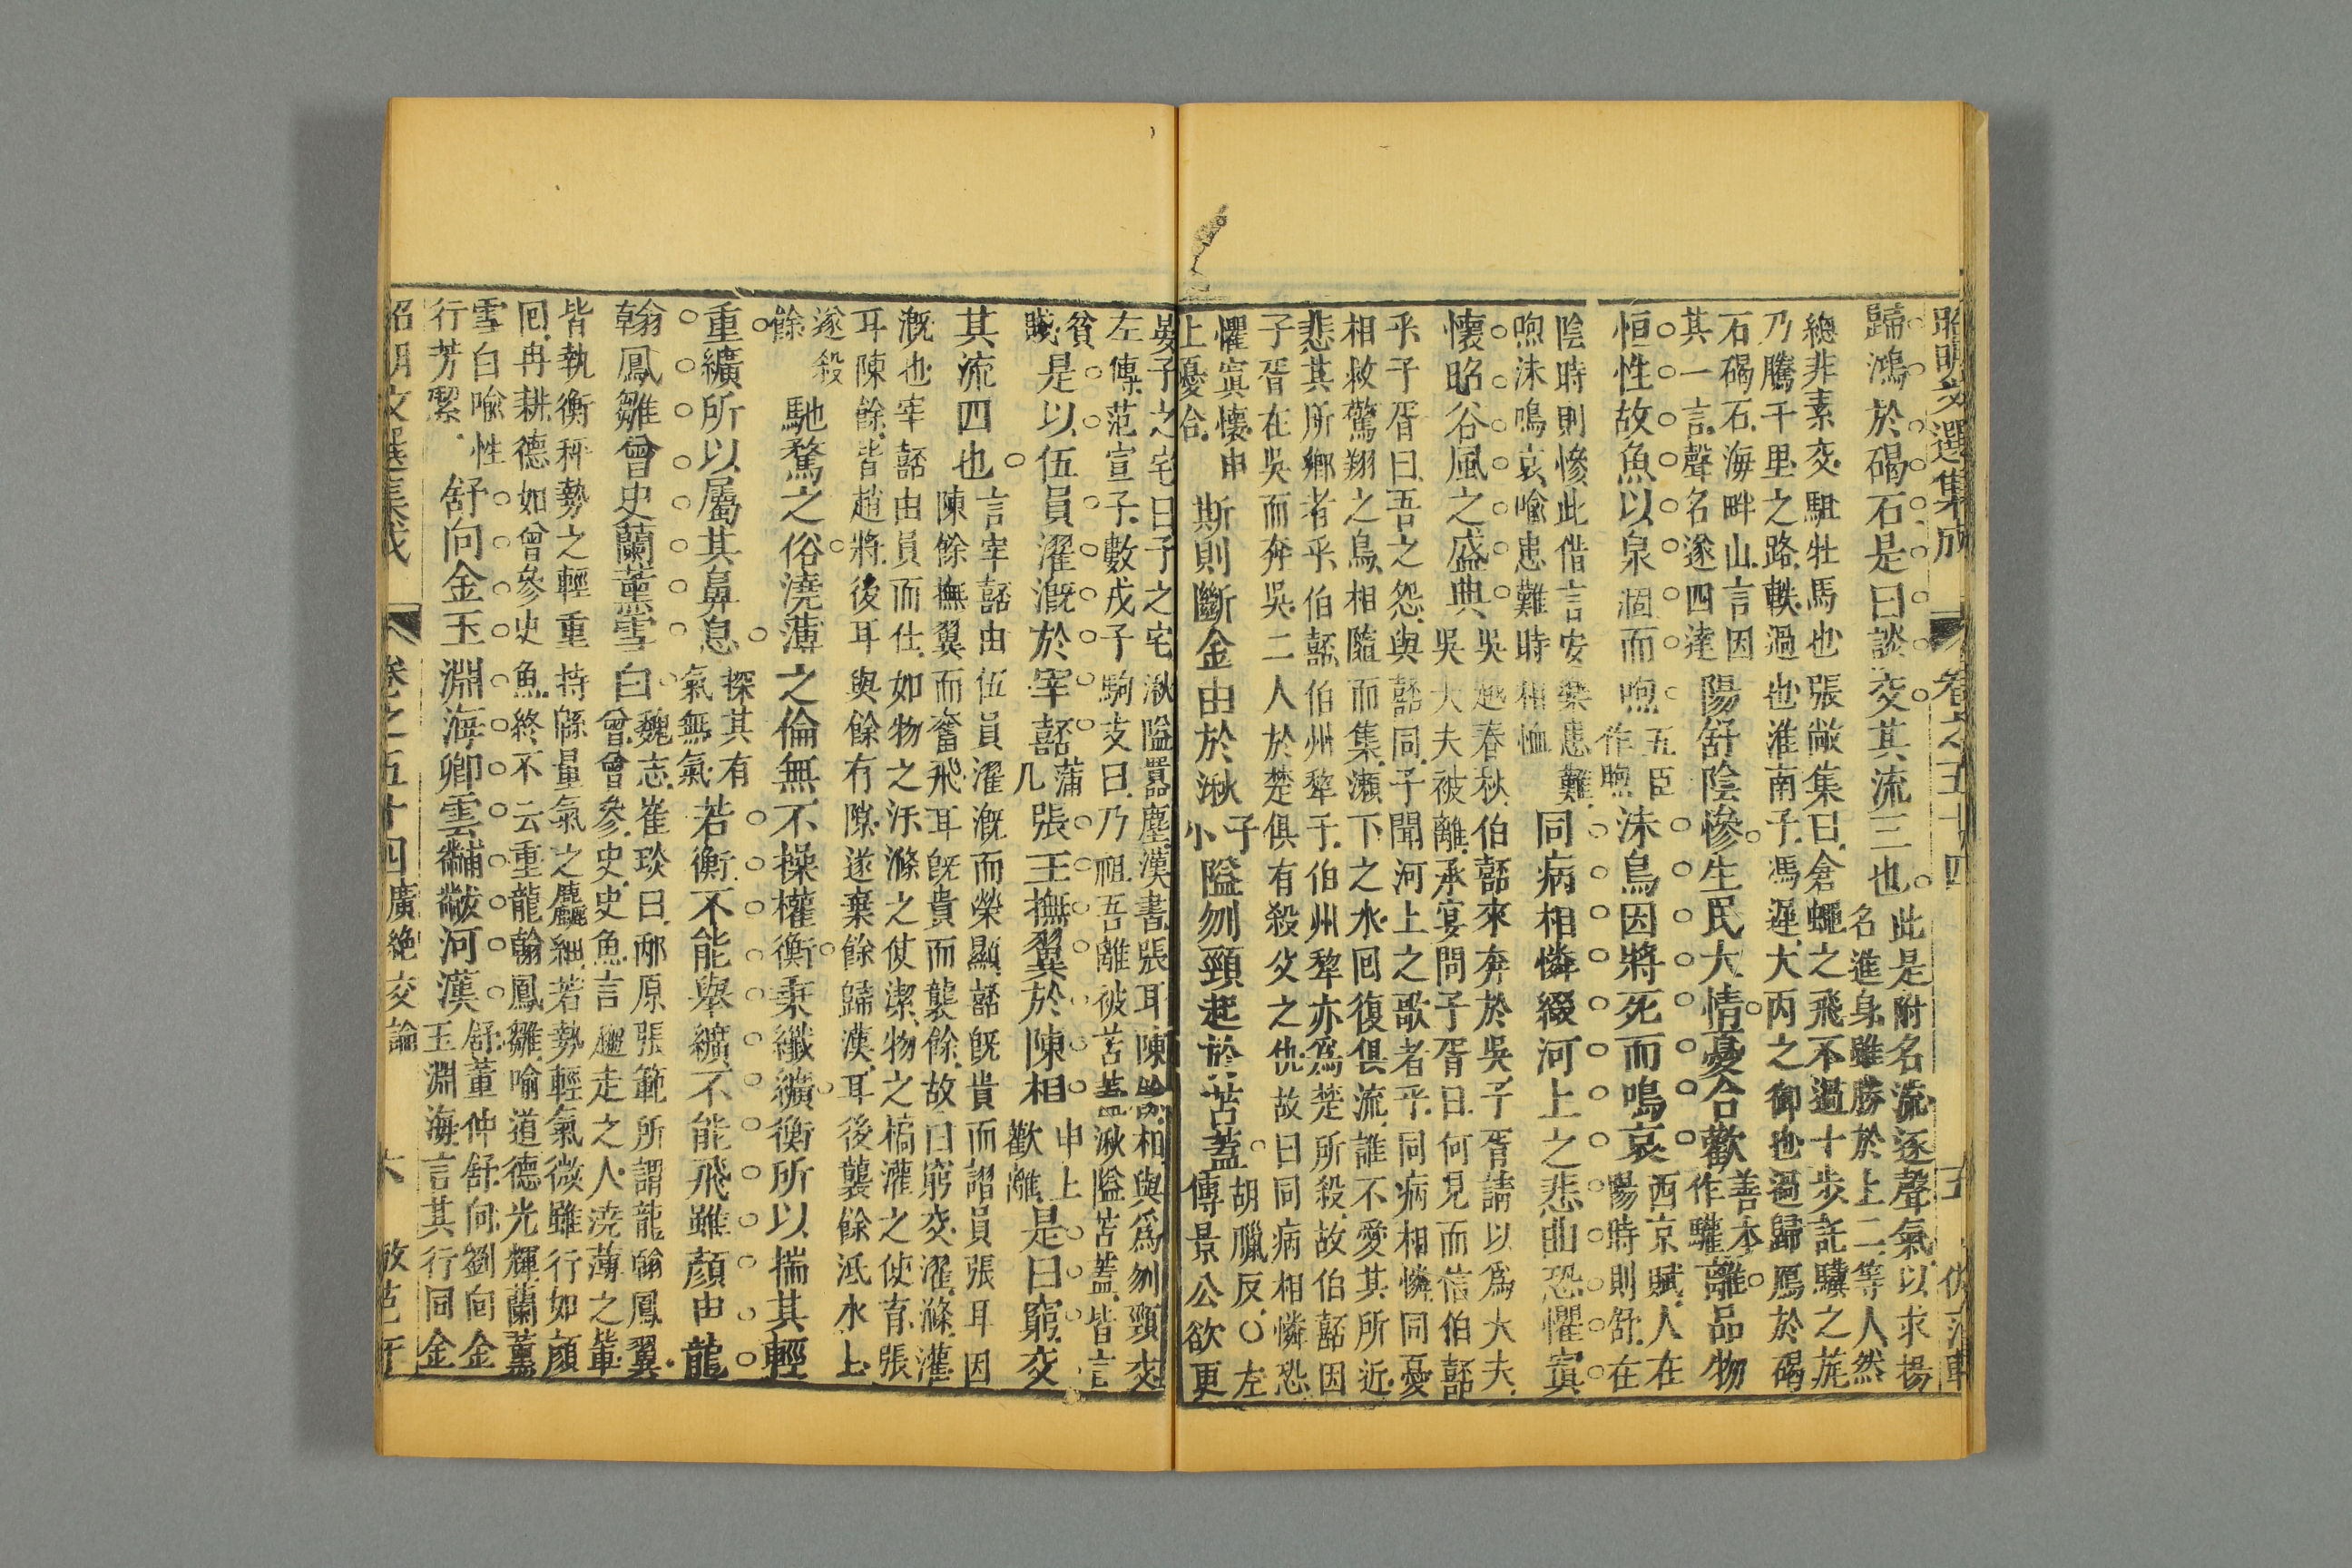 昭明文選集成 卷之五十四 五
歸鴻於碣石是曰談交其流三也此是附名流逐聲氣以求揚
名進身雖勝於上二等人然
總非素交駔牡馬也張敞集曰倉蠅之飛不過十步託驥之旄
乃騰千里之路軼過也淮南子馮遲大丙之御也過歸鴈於碣
石碣石海畔山言因
其一言聲名遂四達陽舒陰慘生民大情憂合歡善本作驩離品物
恒性故魚以泉涸而呴五臣作煦沫鳥因將死而鳴哀西京賦人在
陽時則舒在
陰時則慘此借言安樂患難
呴沫鳴哀喻患難時相恤同病相憐綴河上之悲曲恐懼寘
懷昭谷風之盛典吳越春秋伯嚭來奔於吳子胥請以爲大夫
吳大夫被離承宴問子胥曰何見而信伯嚭
乎子胥曰吾之怨與嚭同子聞河上之歌者乎同病相憐同憂
相救驚翔之鳥相隨而集瀨下之水回復俱流誰不愛其所近
悲其所鄉者乎伯嚭伯州犂于伯州犂亦爲楚所殺故伯嚭因
子胥在吳而奔吳二人於楚俱有殺父之仇故曰同病相憐恐
懼寘懷申
上憂合斯則斷金由於湫子小隘刎頸起於苫蓋胡臘反○左
傳景公欲更
晏子之宅曰子之宅湫隘囂塵漢書張耳陳餘相與爲刎頸交
左傳范宣子數戎子駒支曰乃祖吾離被苫蓋湫隘苫蓋皆言
貧賤是以伍員濯溉於宰嚭蒲几張王撫翼於陳相申上歡離是曰窮交
其流四也言宰嚭由伍員濯溉而榮顯嚭既貴而譖員張耳因
陳餘撫翼而奮飛耳既貴而襲餘故曰窮交濯滌灌
溉也宰嚭由員而仕如物之汙滌之使潔物之槁灌之使育張
耳陳餘皆趙將後耳與餘有隙遂棄餘歸漢耳後襲餘泜水上
遂殺
餘馳騖之俗澆薄之倫無不操權衡秉纖纊衡所以揣其輕
重纊所以屬其鼻息探其有
氣無氣若衡不能舉纊不能飛雖顏冉龍
翰鳳雛曾史蘭薰雪白魏志崔琰曰邴原張範所謂龍翰鳳翼
曾曾參史史魚言趨走之人澆薄之輩
皆執衡秤勢之輕重持緜量氣之麤細若勢輕氣微雖行如顏
回冉耕德如曾參史魚終不云重龍翰鳳雛喻道德光輝蘭薰
雪白喻性
行芳潔舒向金玉淵海卿雲黼黻河漢舒董仲舒向劉向金
玉淵海言其行同金
昭明文選集成 卷之五十四 廣絶交論 六